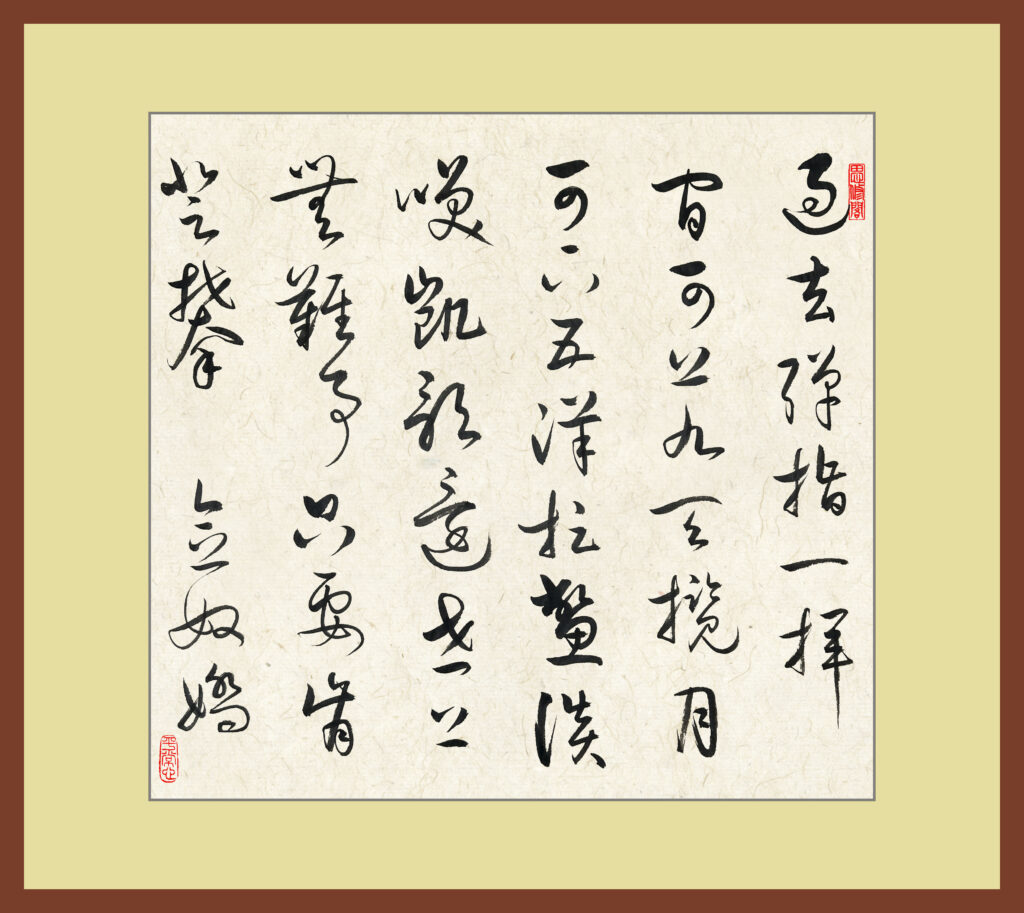 過去彈指一揮
間可上九天攬月
可下五洋捉鱉談
笑凱歌還世上
無難事只要肯
登攀 念奴嬌
平常心